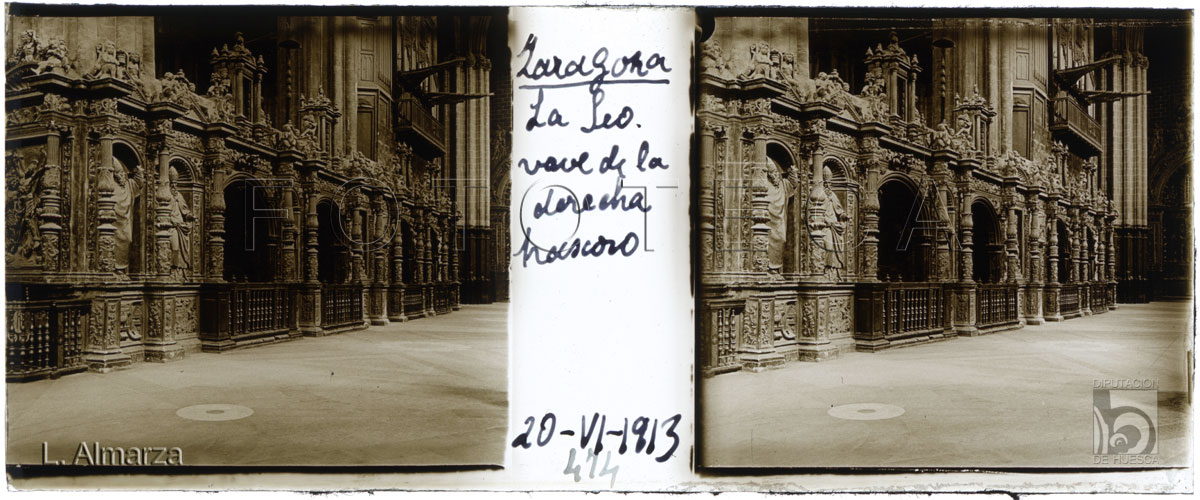 Zaragoza
La Seo.
nave de la
derecha
trascoro
20-VI-1913
474
FOTOTECA
L. Almarza
DIPUTACIÓN
DE HUESCA